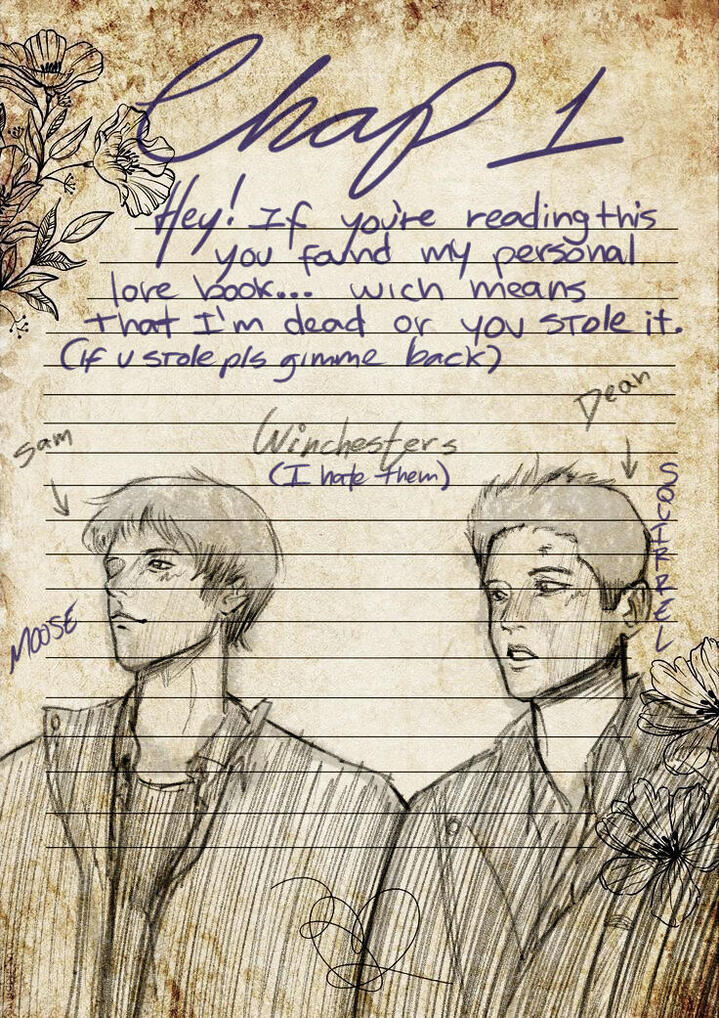 Chap 1
Hey! If you're reading this
you found my personal
lore book... wich means
that I'm dead or you stole it.
(if u stole pls gimme back)
Dean
Sam
Winchesters
(I hate them)
SQUIRREL
MOOSE